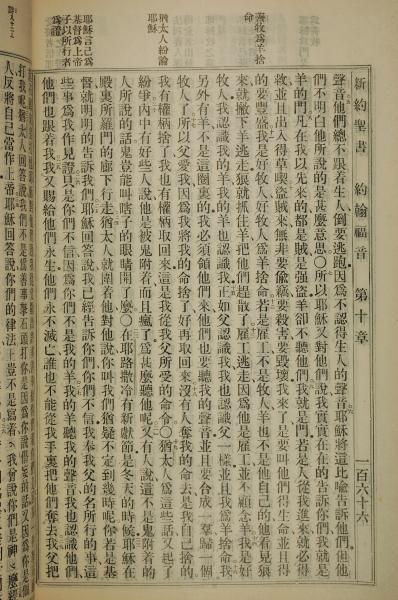 新約聖書 約翰福音 第十章 一百六十六
善牧爲羊捨
命
聲音他們總不跟着生人倒要逃跑因爲不認得生人的聲音耶穌將這比喻告訴他們但他
們不明白他所說的是甚麽意思○所以耶穌又對他們說我實實在在的告訴你們我就是
羊的門凡在我以先來的都是賊是強盜羊卻不聽他們我就是門若是人從我進來就必得
救並且出入得草喫盜賊來無非要偷竊要殺害要毀壞我來了是要叫他們得生命並且得
的要豐盛我是好牧人好牧人爲羊捨命若是雇工不是牧人羊也不是他自己的他看見狼
來就撇下羊逃走狼就抓住羊把他們趕散了雇工逃走因爲他是雇工並不顧念羊我是好
牧人我認識我的羊我的羊也認識我正如父認識我我也認識父一樣並且我爲羊捨命我
另外有羊不是這圈裏的我必須領他們來他們也要聽我的聲音並且要合成一羣歸一個
牧人了所以父愛我因爲我將我的命捨了好再取回來沒有人奪我的命去是我自己捨的
我有權柄捨了我也有權柄取回來這是我從我父所受的命令○猶太人爲這些話又起了
猶太人紛論
耶穌
紛爭內中有好些人說他是被鬼附着而且瘋了爲甚麽聽他呢又有人說這不是鬼附着的
人所說的話鬼豈能叫瞎子的眼睛開了麽○在耶路撒冷有新獻節是冬天的時候耶穌在
殿裏所羅門的廊下行走猶太人就圍着他對他說你叫我們猶疑不定到幾時呢你若是基
耶穌言己爲
基督爲上帝
子以所行者
爲證
督就明明的告訴我們耶穌回答說我已經告訴你們你們不信我奉我父的名所行的事這
些事爲我作見證只是你們不信因爲你們不是我的羊我的羊聽我的聲音我也認識他們
他們也跟着我我又賜給他們永生他們永不滅亡誰也不能從我手裏把他們奪去我父把
打我呢猶太人回答說我們不是爲善事拿石頭打你是因爲你說僭妄的話又因爲你是個
人反將自己當作上帝耶穌回答說你們的律法上豈不是寫着我曾說你們是神麽經